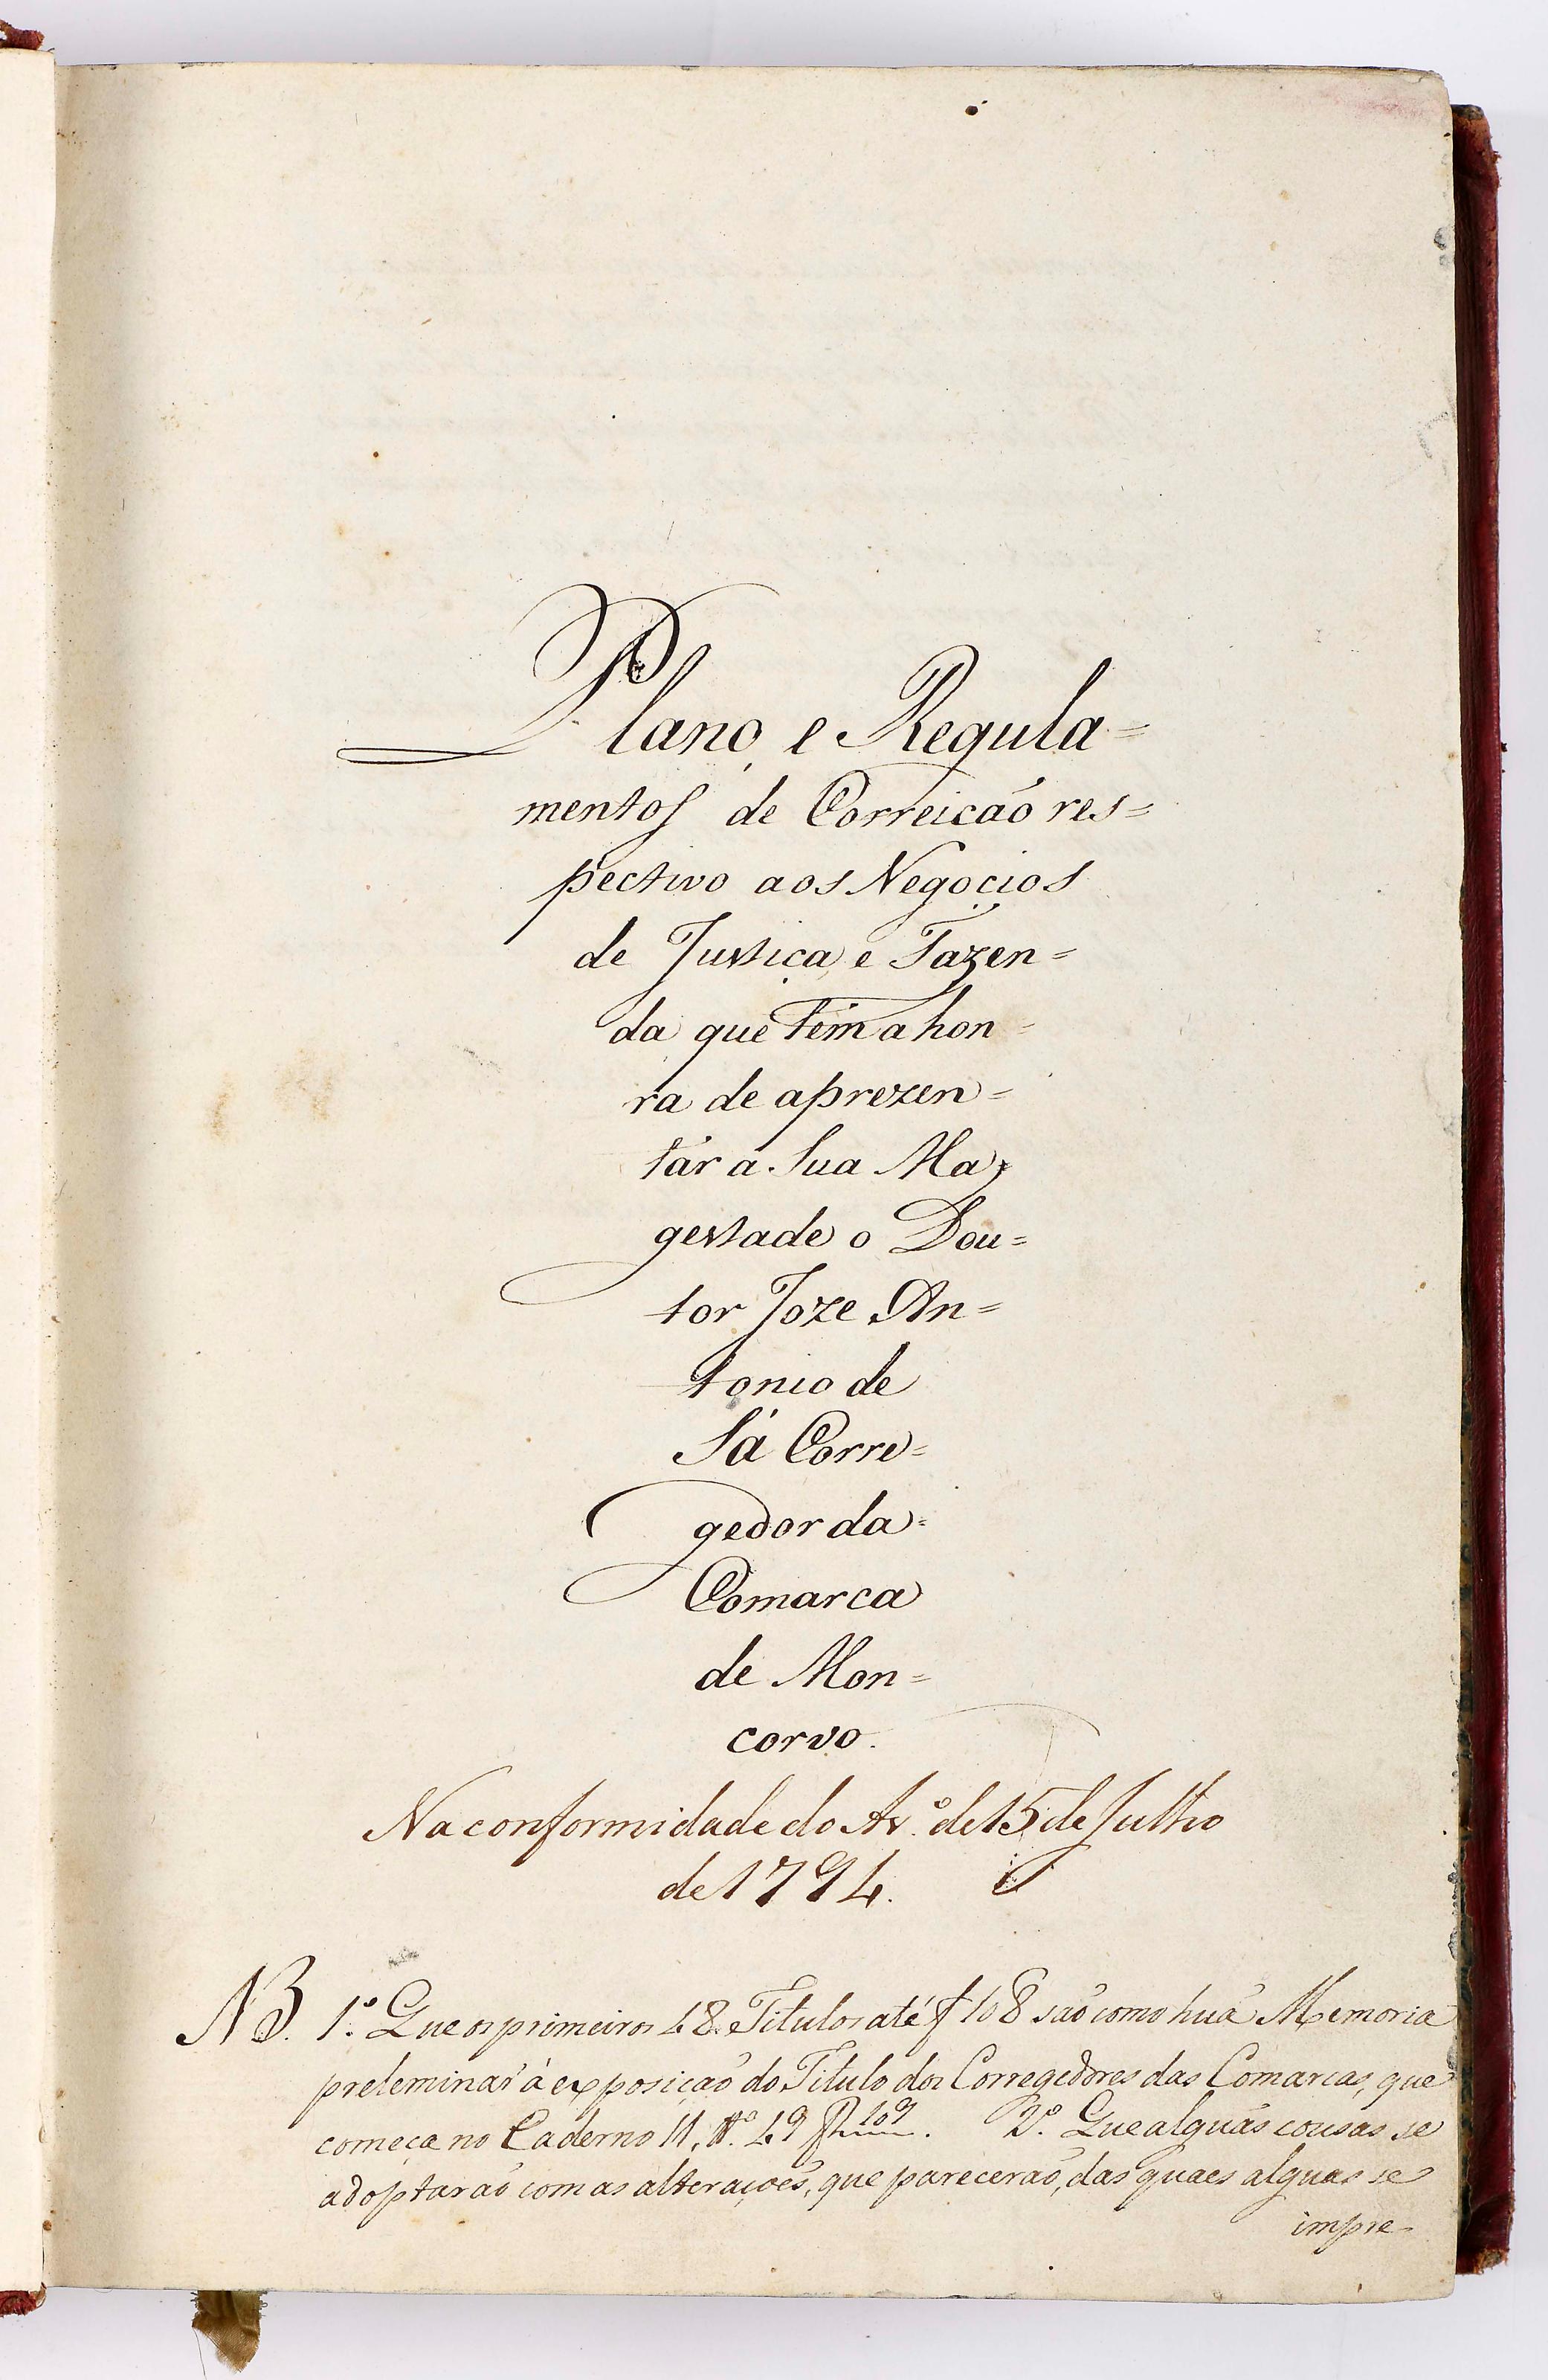 Plano e Regula=
mentos de Correicáo res=
pectivo aos Negocios
de Justiça e Fazen=
da que tem a hon=
ra de aprezen=
tár a Sua Ma=
gestade o Dou=
tor Joze An=
tonio de
Sá Corre=
gedor da=
Comarca
de Mon=
corvo.
Na conformidade do Av.º de 15 de Julho
de 1794.
NB. 1.º Que os primeiros 48 Titulos até f 108 saõ como huã Memoria
preleminar á exposiçaõ do Titulo dos Corregedores das Comarcas, que
começa no Caderno 11, N.º 49 f 109. 2.º Que alguãs cousas se
adoptaraõ com as alteraçoẽs, que pareceraõ, das quaes alguas se
impre-